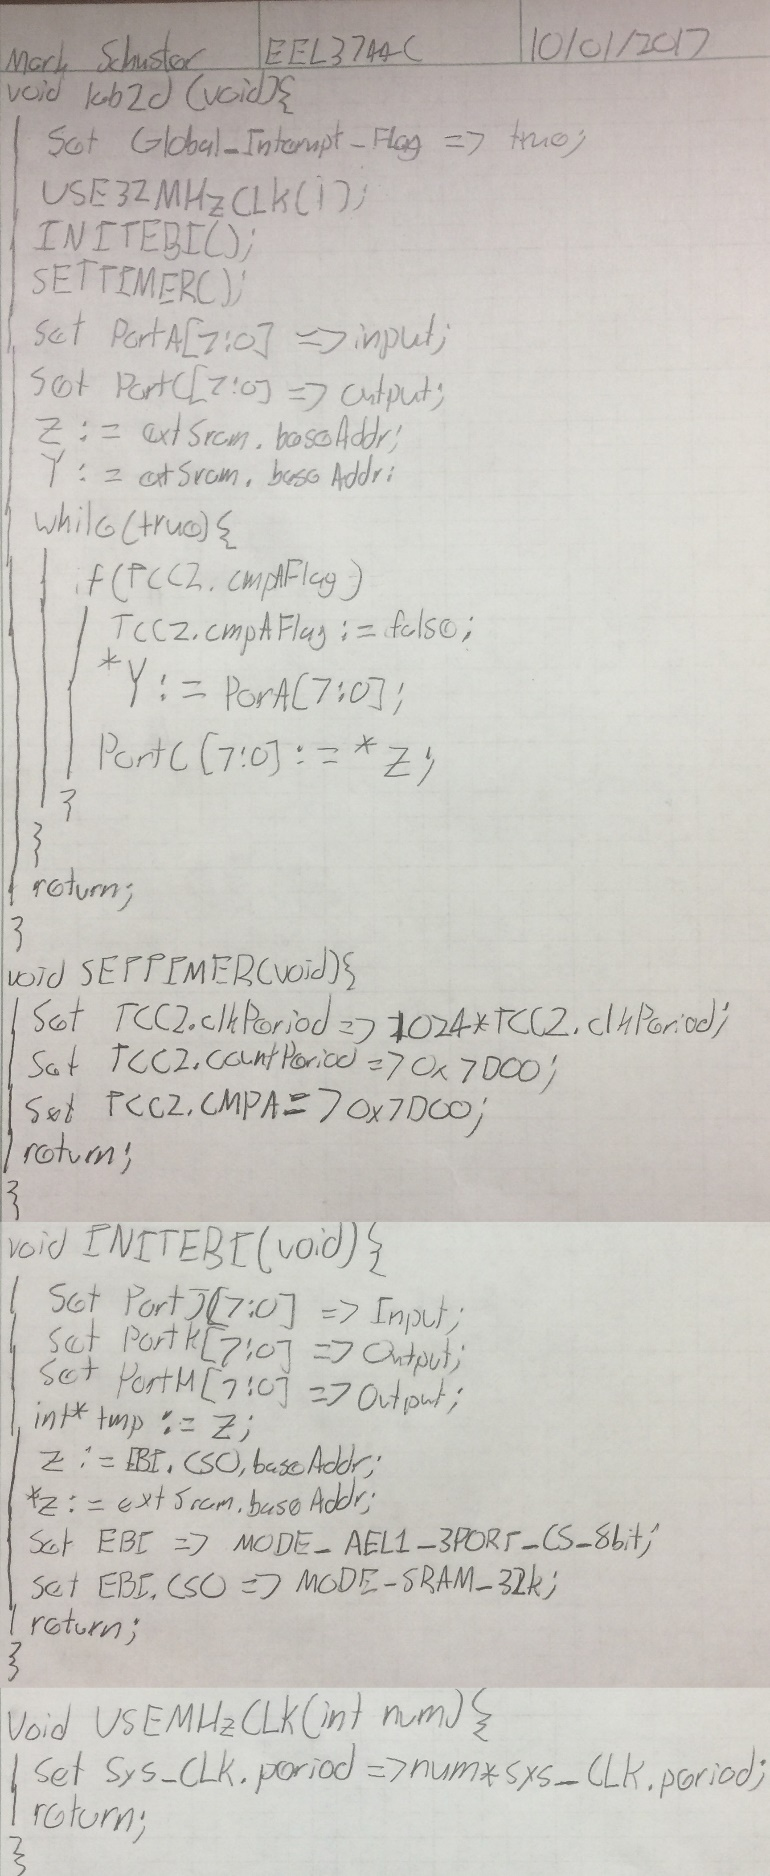 Mark Schuster EEL3744C 10/01/2017
void lab2d (void){
Set Global_Interrupt_Flag => true;
USE32MHzCLK(1);
INITEBI();
SETTIMER();
Set PortA[7:0] => input;
Set PortC[7:0] => Output;
Z := extSram.baseAddr;
Y := extSram.baseAddr;
while(true){
if(TCC2.cmpAFlag)
TCC2.cmpAFlag := false;
*Y := PorA[7:0];
PortC[7:0] := *Z;
}
}
return;
}
void SETTIMER(void){
Set TCC2.clkPeriod => 1024*TCC2.clkPeriod;
Set TCC2.countPeriod => 0x7D00;
Set TCC2.CMPA => 0x7D00;
return;
}
void INITEBI(void){
Set PortJ[7:0] => Input;
Set PortK[7:0] => Output;
Set PortH[7:0] => Output;
int* tmp := Z;
Z := EBI.CS0.baseAddr;
*Z := extSram.baseAddr;
Set EBI => MODE_ALE1_3PORT_CS_8bit;
set EBI.CS0 => MODE-SRAM_32k;
return;
}
Void USEMHzCLK(int num){
Set Sys_CLK.period => num*sys_CLK.period;
return;
}